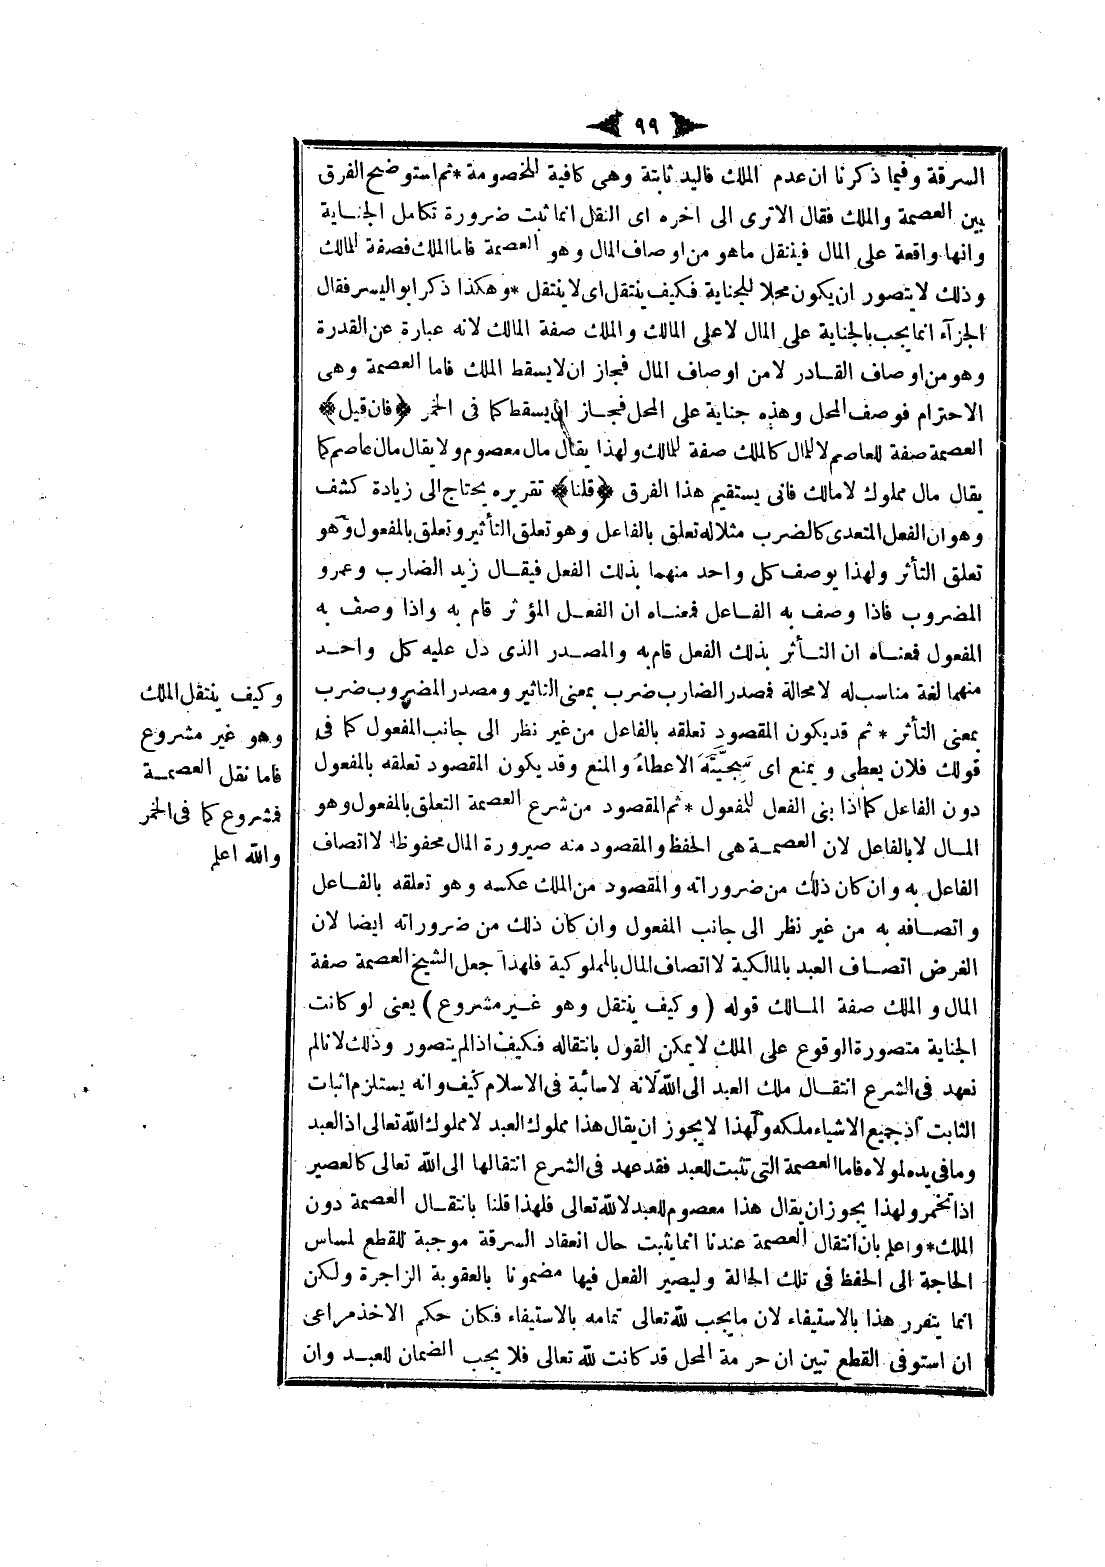 ٩٩
السرقة وفيما ذكرنا ان عدم الملك فاليد ثابتة وهى كافية للخصومة * ثم استوضح الفرق
بين العصمة والملك فقال الاترى الى اخره اى النقل انما ثبت ضرورة تكامل الجناية
وانها واقعة على المال فينتقل ماهو من اوصاف المال وهو العصمة فاما الملك فصفة المالك
وذلك لايتصور ان يكون محلا للجناية فكيف ينتقل اى لا ينتقل * وهكذا ذكر ابو اليسر فقال
الجزآء انما يجب بالجناية على المال لاعلى المالك والملك صفة المالك لانه عبارة عن القدرة
وهو من اوصاف القادر لامن اوصاف المال فجاز ان لايسقط الملك فاما العصمة وهى
الاحترام فوصف المحل وهذه جناية على المحل فجاز ان يسقط كما فى الخمر ﴿فان قيل﴾
العصمة صفة للعاصم لاللمال كالملك صفة للمالك ولهذا يقال مال معصوم ولايقال مال عاصم كما
يقال مال مملوك لامالك فانى يستقيم هذا الفرق ﴿قلنا﴾ تقريره يحتاج الى زيادة كشف
وهو ان الفعل المتعدى كالضرب مثلا له تعلق بالفاعل وهو تعلق التأثير وتعلق بالمفعول وهو
تعلق التأثر ولهذا يوصف كل واحد منهما بذلك الفعل فيقال زيد الضارب وعمرو
المضروب فاذا وصف به الفاعل فمعناه ان الفعل المؤثر قام به واذا وصف به
المفعول فمعناه ان التأثر بذلك الفعل قام به والمصدر الذى دل عليه كل واحد
منهما لغة مناسب له لامحالة فمصدر الضارب ضرب بمعنى التاثير ومصدر المضروب ضرب
بمعنى التأثر * ثم قد يكون المقصود تعلقه بالفاعل من غير نظر الى جانب المفعول كما فى
قولك فلان يعطى ويمنع اى سجيته الاعطاء والمنع وقد يكون المقصود تعلقه بالمفعول
دون الفاعل كما اذا بنى الفعل للمفعول * ثم المقصود من شرع العصمة التعلق بالمفعول وهو
المال لابالفاعل لان العصمة هى الحفظ والمقصود منه صيرورة المال محفوظا لااتصاف
الفاعل به وان كان ذلك من ضروراته والمقصود من الملك عكسه وهو تعلقه بالفاعل
واتصافه به من غير نظر الى جانب المفعول وان كان ذلك من ضروراته ايضا لان
الغرض اتصاف العبد بالمالكية لااتصاف المال بالمملوكية فلهذا جعل الشيخ العصمة صفة
المال والملك صفة المالك قوله ( وكيف ينتقل وهو غير مشروع ) يعنى لوكانت
الجناية متصورة الوقوع على الملك لايمكن القول بانتقاله فكيف اذالم يتصور وذلك لانالم
نعهد فى الشرع انتقال ملك العبد الى الله لانه لاسائبة فى الاسلام كيف وانه يستلزم اثبات
الثابت اذجميع الاشياء ملكه ولهذا لايجوز ان يقال هذا مملوك العبد لامملوك الله تعالى اذالعبد
ومافى يده لمولاه فاما العصمة التى تثبت للعبد فقد عهد فى الشرع انتقالها الى الله تعالى كالعصير
اذا تخمر ولهذا يجوز ان يقال هذا معصوم للعبد لالله تعالى فلهذا قلنا بانتقال العصمة دون
الملك * واعلم بان انتقال العصمة عندنا انما يثبت حال انعقاد السرقة موجبة للقطع لمساس
الحاجة الى الحفظ فى تلك الحالة وليصير الفعل فيها مضمونا بالعقوبة الزاجرة ولكن
انما يتقرر هذا بالاستيفاء لان مايجب لله تعالى تمامه بالاستيفاء فكان حكم الاخذ مراعى
ان استوفى القطع تبين ان حرمة المحل قد كانت لله تعالى فلا يجب الضمان للعبد وان
وكيف ينتقل الملك
وهو غير مشروع
فاما نقل العصمة
فمشروع كما فى الخمر
والله اعلم